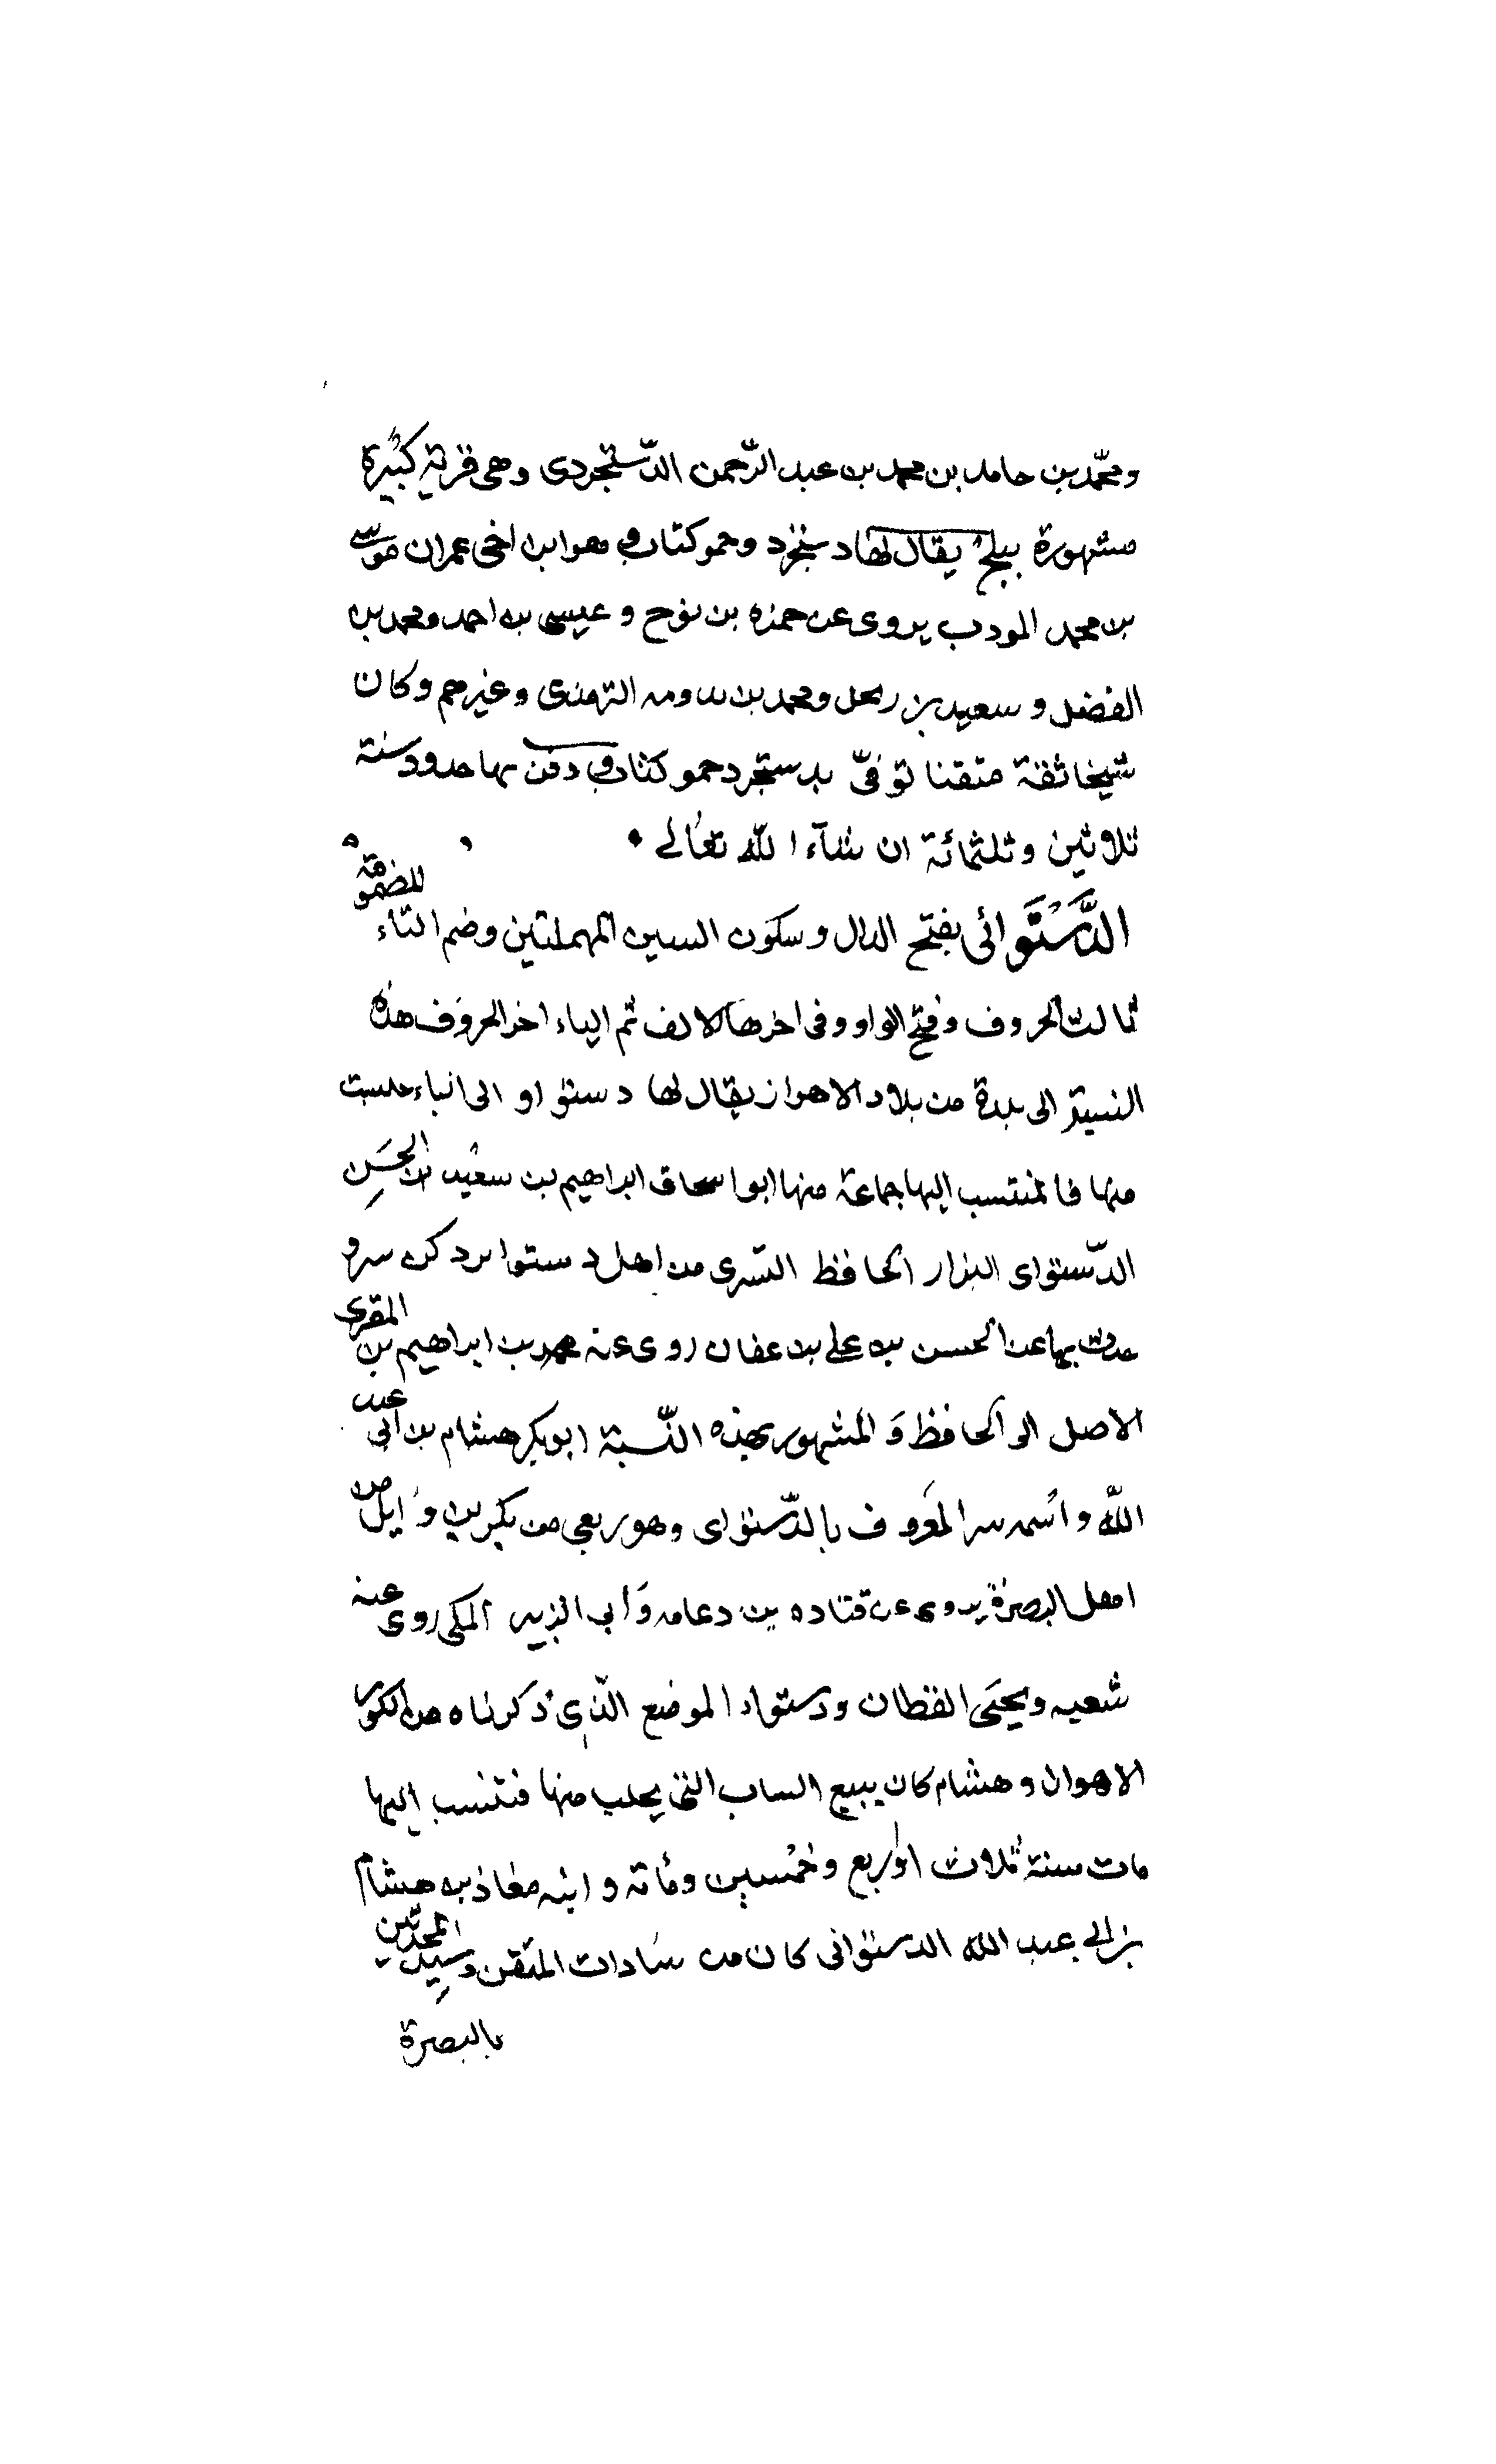 ومحمّد بن حامد بن محمد بن عبد الرّحمن الدّستجردى وهى قرية كبيرة
مشهورة ببلخ يقال لها دستجرد وهو ابن اخى عمران موسى
بن محمد المودب يروى عن حمزه بن نوح وعيسى بن احمد ومحمد بن
الفضل و سعيد بن ومحمد بن الترمذى وغيرهم وكان
شيخا ثقة متقنا توفىّ بدستجرد ودفن بها حدود سنة
ثلاثين وثلثمائة ان شآء اللّه تعالى
الدَّسْتَوائى بفتح الدال وسكون السين المهملتين وضم التاء المضمومة
ثالث الحروف وفتح الواو وفى اخرها الالف ثم الياء اخر الحروف هذه
النسبة الى بلدة من بلاد الاهواز يقال لها دستوا و الى
منها فالمنتسب اليها جماعة منها ابو اسحاق ابراهيم بن سعيد بن الحسَن
الدّستواى البزار الحافظ التسترى من اهل دستوا
حدث بها عن الحسن بن على بن عفان روى عنه محمد بن ابراهيم بن المقرى
الاصل الحافظ وَالمشهور بهذه النّسبة ابو بكر هشام بن ابى عبد
اللّه واسمه المعروف بالدّستواى وهو ربعى من بكر بن وايل من
اهل البصرة يروى عن قتاده بن دعامه وَابى الزبير المكى روى عنه
شعبه ويحيَى القطان ودستواء الموضع الذى ذكرناه من الكور
الاهواز وهشام كان يبيع الثياب التى يجلب منها فتنسب اليها
مات سنة ثلاث او اربع وخمسين ومائة و ابنه معاذ بن هشام
بن ابى عبد الله الدستوائى كان من سادات المتقن وسيد المحدّثين
بالبصرة